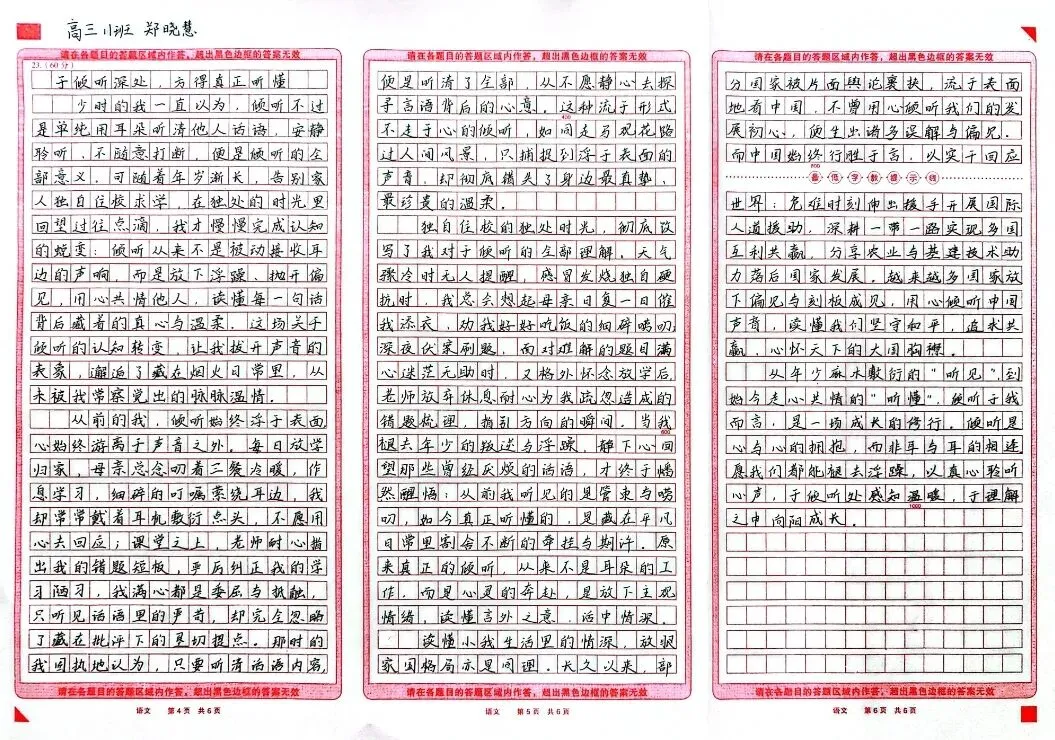 高三11班 郑晓慧
请在各题目的答题区域内作答，超出黑色边框的答案无效
23.（60分）
于倾听深处，方得真正听懂
少时的我一直以为，倾听不过
是单纯用耳朵听清他人话语，安静
聆听，不随意打断，便是倾听的全
部意义。可随着年岁渐长，告别家
人独自住校求学，在独处的时光里
回望过往点滴，我才慢慢完成认知
的蜕变：倾听从来不是被动接收耳
边的声响，而是放下浮躁、抛开偏
见，用心共情他人，读懂每一句话
背后藏着的真心与温柔。这场关于
倾听的认知转变，让我拨开声音的
表象，邂逅了藏在烟火日常里，从
未被我常察觉出的脉脉温情。
从前的我，倾听始终浮于表面，
心始终游离于声音之外。每日放学
归家，母亲总念叨着三餐冷暖，作
息学习，细碎的叮嘱萦绕耳边，我
却常常戴着耳机敷衍点头，不愿用
心去回应；课堂之上，老师耐心指
出我的错题短板，严厉纠正我的学
习陋习，我满心都是委屈与抵触，
只听见话语里的严苛，却完全忽略
了藏在批评下的恳切提点。那时的
我固执地认为，只要听清话语内容，
请在各题目的答题区域内作答，超出黑色边框的答案无效
语文 第4页 共6页
请在各题目的答题区域内作答，超出黑色边框的答案无效
便是听清了全部，从不愿静心去探
寻言语背后的心意。这种流于形式
400
不走于心的倾听，如同走马观花路
过人间风景，只捕捉到浮于表面的
声音，却彻底错失了身边最真挚、
最珍贵的温柔。
独自住校的独处时光，彻底改
写了我对于倾听的全部理解。天气
骤冷时无人提醒，感冒发烧独自硬
抗时，我总会想起母亲日复一日催
我添衣，劝我好好吃饭的细碎唠叨，
深夜伏案刷题，面对难解的题目满
心迷茫无助时，又格外怀念放学后，
老师放弃休息耐心为我疏忽造成的
错题梳理，指引方向的瞬间。当我
600
褪去年少的叛逆与浮躁，静下心回
望那些曾经厌烦的话语，才终于幡
然醒悟：从前我听见的是管束与唠
叨，如今真正听懂的，是藏在平凡
日常里割舍不断的牵挂与期许。原
来真正的倾听，从来不是耳朵的工
作，而是心灵的奔赴，是放下主观
情绪，读懂言外之意，话中情深。
读懂小我生活里的情深，放眼
家国格局亦是同理。长久以来，部
请在各题目的答题区域内作答，超出黑色边框的答案无效
语文 第5页 共6页
请在各题目的答题区域内作答，超出黑色边框的答案无效
分国家被片面舆论裹挟，流于表面
地看中国，不曾用心倾听我们的发
展初心，便生出诸多误解与偏见。
而中国始终行胜于言，以实干回应
800
最低字数提示线
世界：危难时刻伸出援手开展国际
人道援助，深耕一带一路实现多国
互利共赢，分享农业与基建技术助
力落后国家发展。越来越多国家放
下偏见与刻板成见，用心倾听中国
声音，读懂我们坚守和平，追求共
赢，心怀天下的大国胸襟。
从年少麻木敷衍的“听见”，到
始今走心共情的“听懂”，倾听于我
而言，是一场成长的修行。倾听是
心与心的拥抱，而非耳与耳的相连
愿我们都能褪去浮躁，以真心聆听
心声，于倾听处感知温暖，于理解
1000
之中向阳成长。
请在各题目的答题区域内作答，超出黑色边框的答案无效
语文 第6页 共6页